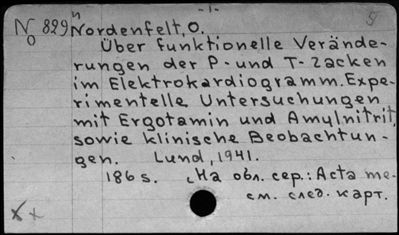 -1-
No 829 Nordenfelt, O.
Über funktionelle Verände-
rungen der P- und T-Zacken
im Elektrokardiogramm. Expe-
rimentelle Untersuchungen
mit Ergotamin und Amylnitrit,
sowie klinische Beobachtun-
gen. Lund, 1941.
186 s. На обл. сер.: Acta me-
см. след. карт.